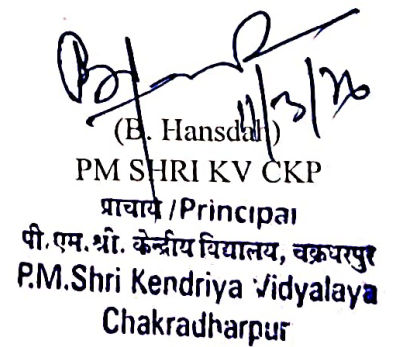 11/3/26
(B. Hansdah)
PM SHRI KV CKP
प्राचार्य /Principal
पी.एम.श्री. केन्द्रीय विद्यालय, चक्रधरपुर
P.M.Shri Kendriya Vidyalaya
Chakradharpur